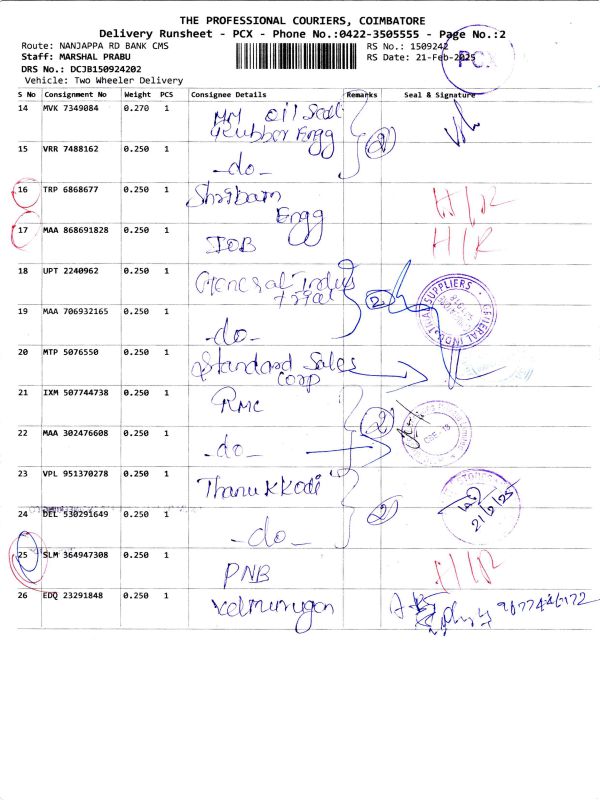 THE PROFESSIONAL COURIERS, COIMBATORE
Delivery Runsheet - PCX - Phone No.:0422-3505555 - Page No.:2
Route: NANJAPPA RD BANK CMS
RS No.: 1509242
Staff: MARSHAL PRABU
RS Date: 21-Feb-2025
PCX
DRS No.: DCJB150924202
Vehicle: Two Wheeler Delivery
S No Consignment No Weight PCS Consignee Details Remarks Seal & Signature
14 MVK 7349084 0.270 1 MM Oil Seal
& Rubber Engg
2
15 VRR 7488162 0.250 1
-do-
16 TRP 6868677 0.250 1 Shribam
Engg
H/R
17 MAA 868691828 0.250 1
IOB H/R
18 UPT 2240962 0.250 1 General Indus
trial
2
19 MAA 706932165 0.250 1
-do-
20 MTP 5076550 0.250 1 Standard Sales
Corp
21 IXM 507744738 0.250 1 RMC
2
CBE-18
22 MAA 302476608 0.250 1
-do-
23 VPL 951370278 0.250 1 Thanukkodi
2
21/2/25
24 DEL 530291649 0.250 1
-do-
25 SLM 364947308 0.250 1
PNB H/R
26 EDQ 23291848 0.250 1 Velmurugan